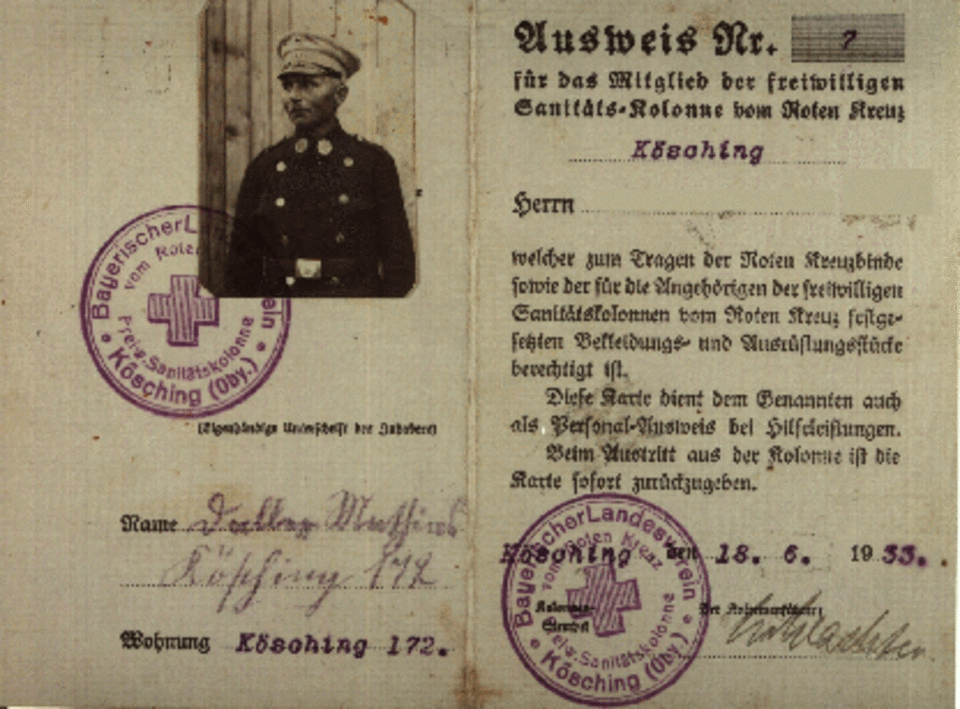 BayerischerLan
vom Roten
Freiw. Sanitätskolonne
Kösching (Oby.)
(Eigenhändige Unterschrift des Inhabers)
Name Daller Mathias
Kösching 172
Wohnung Kösching 172.
Ausweis Nr. 7
für das Mitglied der freiwilligen
Sanitäts-Kolonne vom Roten Kreuz
Kösching
Herrn
welcher zum Tragen der Roten Kreuzbinde
sowie der für die Angehörigen der freiwilligen
Sanitätskolonnen vom Roten Kreuz festge-
setzten Bekleidungs- und Ausrüstungsstücke
berechtigt ist.
Diese Karte dient dem Genannten auch
als Personal-Ausweis bei Hilfeleistungen.
Beim Austritt aus der Kolonne ist die
Karte sofort zurückzugeben.
Kösching den 18. 6. 1933.
Kolonnen-
Stempel
Der Kolonnenführer:
BayerischerLandesverein
vom Roten Kreuz
Freiw. Sanitätskolonne
Kösching (Oby.)